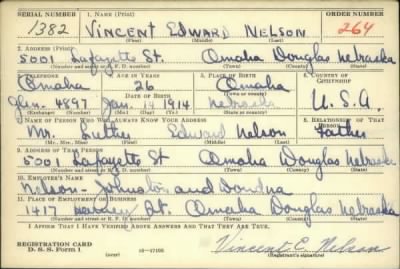 SERIAL NUMBER 1. NAME (Print) ORDER NUMBER
1382 VINCENT EDWARD NELSON 264
(First) (Middle) (Last)
2. ADDRESS (Print)
5001 Lafayette St. Omaha Douglas Nebraska
(Number and street or R. F. D. number) (Town) (County) (State)
3. TELEPHONE 4. AGE IN YEARS 5. PLACE OF BIRTH 6. COUNTRY OF CITIZENSHIP
Omaha 26 Omaha
DATE OF BIRTH (Town or county)
4897 Jan. 14 1914 Nebraska U.S.A.
(Exchange) (Number) (Mo.) (Day) (Yr.) (State or country)
7. NAME OF PERSON WHO WILL ALWAYS KNOW YOUR ADDRESS 8. RELATIONSHIP OF THAT PERSON
Mr. Luther Edward Nelson Father
(Mr., Mrs., Miss) (First) (Middle) (Last)
9. ADDRESS OF THAT PERSON
5001 Lafayette St Omaha Douglas Nebraska
(Number and street or R. F. D. number) (Town) (County) (State)
10. EMPLOYER'S NAME
Nelson - Johnston and
11. PLACE OF EMPLOYMENT OR BUSINESS
1417 St. Omaha Douglas Nebraska
(Number and street or R. F. D. number) (Town) (County) (State)
I AFFIRM THAT I HAVE VERIFIED ABOVE ANSWERS AND THAT THEY ARE TRUE.
REGISTRATION CARD
D. S. S. Form 1 (over) 16—17105 Vincent E. Nelson
(Registrant's signature)